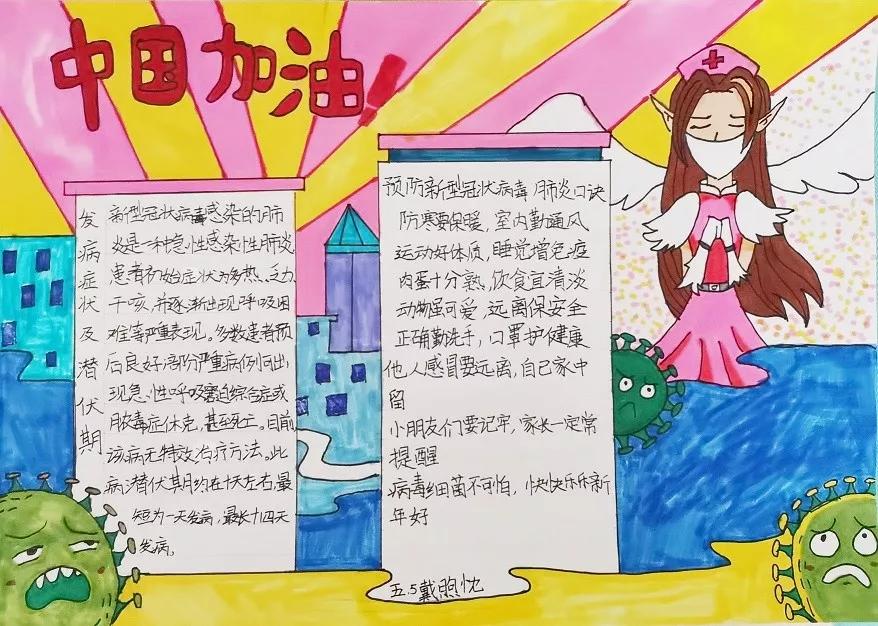 中国加油!
发病症状及潜伏期
新型冠状病毒感染的肺
炎是一种急性感染性肺炎
患者初始症状为多热、乏力
干咳,并逐渐出现呼吸困
难等严重表现。多数患者预
后良好,部分严重病例可出
现急性呼吸窘迫综合症或
脓毒症休克,甚至死亡。目前
该病无特效治疗方法。此
病潜伏期约在十天左右,最
短为一天发病,最长十四天
发病。
预防新型冠状病毒肺炎口诀
防寒要保暖,室内勤通风
运动好体质,睡觉增免疫
肉蛋十分熟,饮食宜清淡
动物虽可爱,远离保安全
正确勤洗手,口罩护健康
他人感冒要远离,自己家中
留
小朋友们要记牢,家长一定常
提醒
病毒细菌不可怕,快快乐乐新
年好
五.5戴煦忱